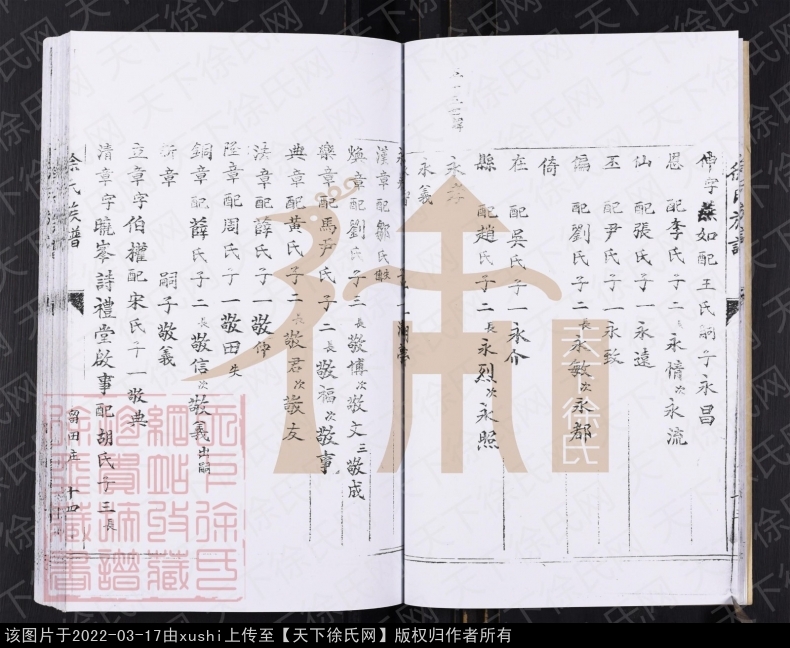 伸字燕如配王氏嗣子永昌
恩 配李氏子二長永情次永流
仙 配張氏子一永遠
丕 配尹氏子一永致
偏 配劉氏子二長永敏次永都
倚
在 配吳氏子一永介
縣 配趙氏子二長永烈次永照
永孝
永義
漢章配鄒氏
煥章配劉氏子三長敬博次敬文三敬成
樂章配馬尹氏子二長敬福次敬事
典章配黃氏子二長敬君次敬友
漢章配薛氏子一敬伸
陞章配周氏子一敬田失
銅章配薛氏子二長敬信次敬義出嗣
斬章 嗣子敬義
立章字伯權配宋氏子一敬典
清章字曉峯詩禮堂啟事配胡氏子三長
徐氏族譜
留田庄 十四
天下徐氏
天下徐氏网
该图片于2022-03-17由xushi上传至【天下徐氏网】版权归作者所有